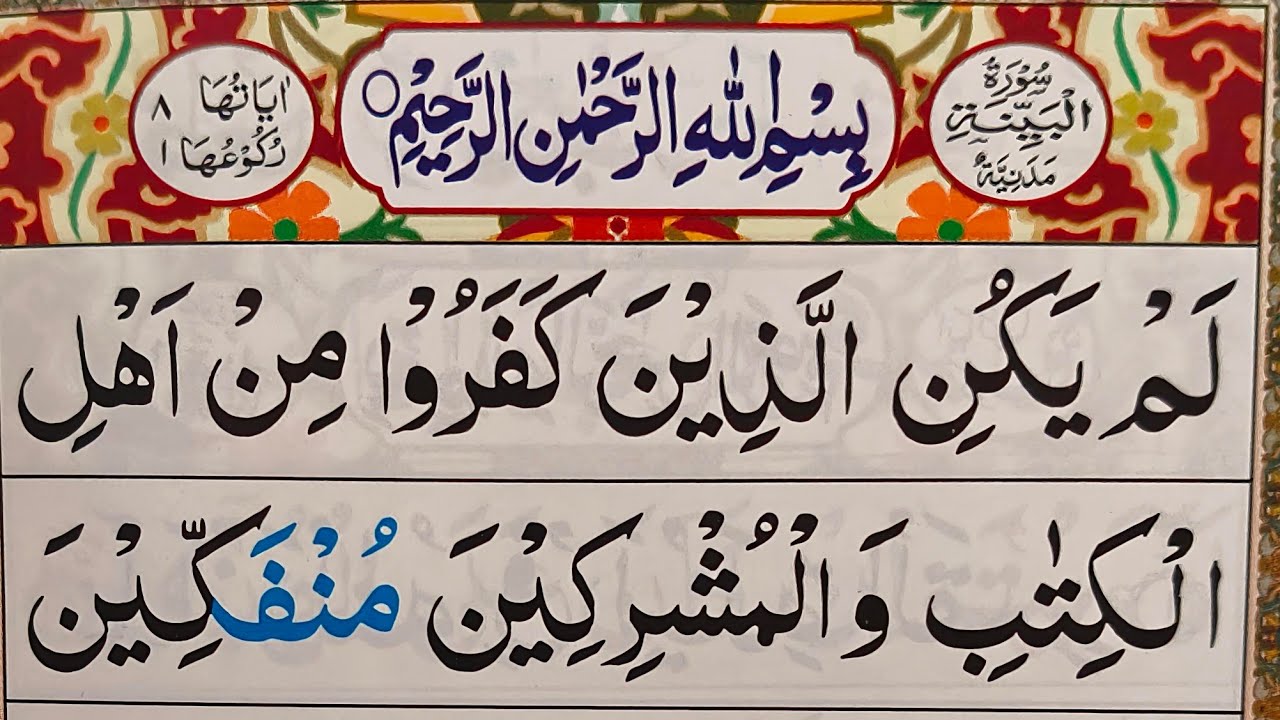 سُوْرَةُ
الْبَيِّنَةِ
مَدَنِيَّةٌ
بِسْمِ اللّٰهِ الرَّحْمٰنِ الرَّحِيْمِ○
اٰيَاتُهَا ٨
رُكُوْعُهَا ١
لَمْ يَكُنِ الَّذِيْنَ كَفَرُوْا مِنْ اَهْلِ
الْكِتٰبِ وَ الْمُشْرِكِيْنَ مُنْفَكِّيْنَ